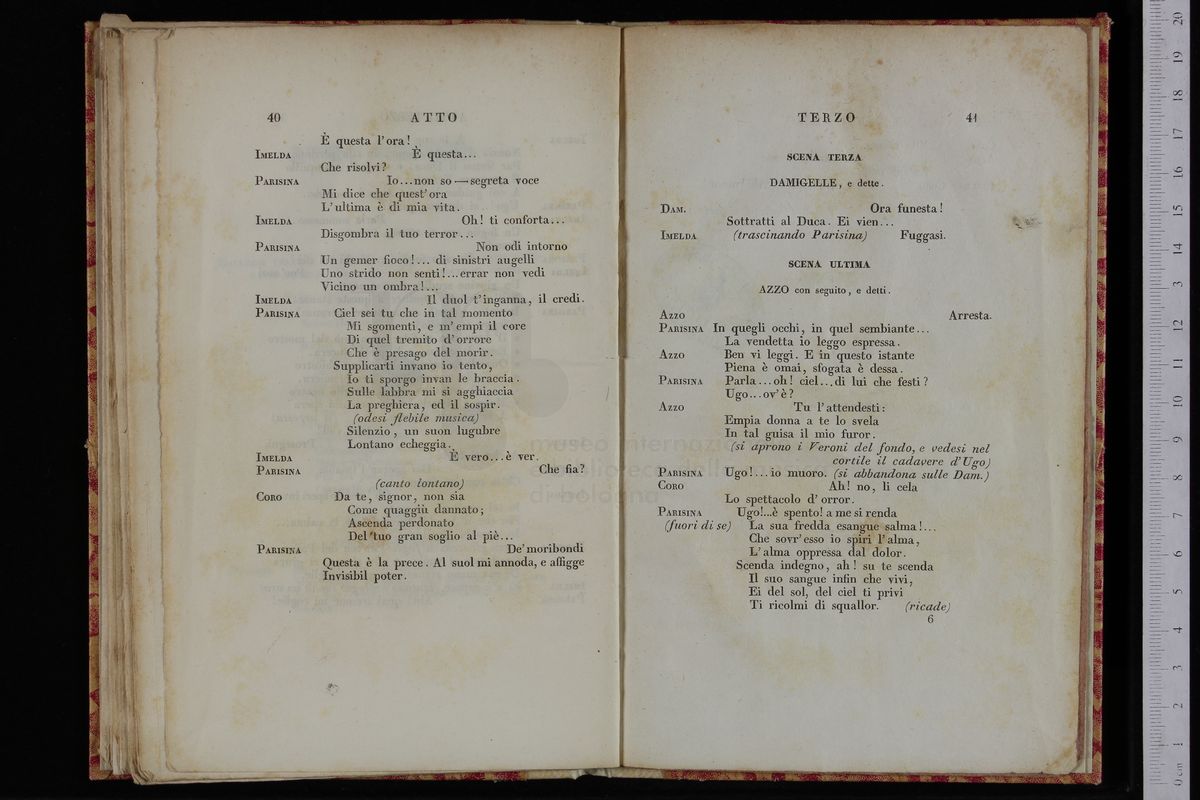 40 ATTO
È questa l'ora!
IMELDA È questa...
Che risolvi?
PARISINA Io...non so — segreta voce
Mi dice che quest'ora
L'ultima è di mia vita.
IMELDA Oh! ti conforta...
Disgombra il tuo terror...
PARISINA Non odi intorno
Un gemer fioco!... di sinistri augelli
Uno strido non senti!...errar non vedi
Vicino un ombra!...
IMELDA Il duol t'inganna, il credi.
PARISINA Ciel sei tu che in tal momento
Mi sgomenti, e m'empi il core
Di quel tremito d'orrore
Che è presago del morir.
Supplicarti invano io tento,
Io ti sporgo invan le braccia.
Sulle labbra mi si agghiaccia
La preghiera, ed il sospir.
(odesi flebile musica)
Silenzio, un suon lugubre
Lontano echeggia.
IMELDA È vero...è ver.
PARISINA Che fia?
(canto lontano)
CORO Da te, signor, non sia
Come quaggiù dannato;
Ascenda perdonato
Del tuo gran soglio al piè...
PARISINA De'moribondi
Questa è la prece. Al suol mi annoda, e affigge
Invisibil poter.
TERZO 41
SCENA TERZA
DAMIGELLE, e dette.
DAM. Ora funesta!
Sottratti al Duca. Ei vien...
IMELDA (trascinando Parisina) Fuggasi.
SCENA ULTIMA
AZZO con seguito, e detti.
AZZO Arresta.
PARISINA In quegli occhi, in quel sembiante...
La vendetta io leggo espressa.
AZZO Ben vi leggi. E in questo istante
Piena è omai, sfogata è dessa.
PARISINA Parla...oh! ciel...di lui che festi?
Ugo...ov'è?
AZZO Tu l'attendesti:
Empia donna a te lo svela
In tal guisa il mio furor.
(si aprono i Veroni del fondo, e vedesi nel
cortile il cadavere d'Ugo)
PARISINA Ugo!...io muoro. (si abbandona sulle Dam.)
CORO Ah! no, li cela
Lo spettacolo d'orror.
PARISINA Ugo!...è spento! a me si renda
(fuori di se) La sua fredda esangue salma!...
Che sovr'esso io spiri l'alma,
L'alma oppressa dal dolor.
Scenda indegno, ah! su te scenda
Il suo sangue infin che vivi,
Ei del sol, del ciel ti privi
Ti ricolmi di squallor. (ricade)
6
museo internazi
di bologna
0 cm 1 2 3 4 5 6 7 8 9 10 11 12 13 14 15 16 17 18 19 20